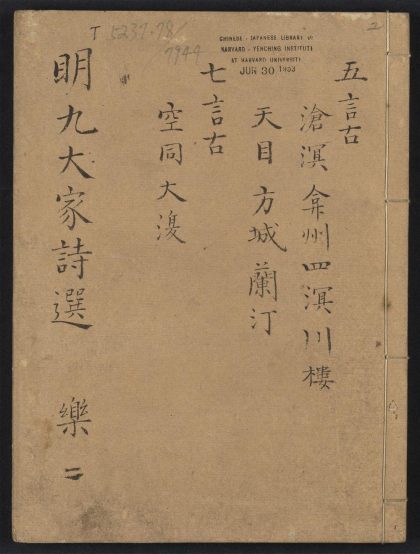 五言古
滄溟弇州四溟川樓
天目方城蘭汀
七言古
空同大湲
明九大家詩選 樂 二
T 5237.78/
7944
CHINESE - JAPANESE LIBRARY OF
HARVARD - YENCHING INSTITUTE
AT HARVARD UNIVERSITY
JUN 30 1953
2